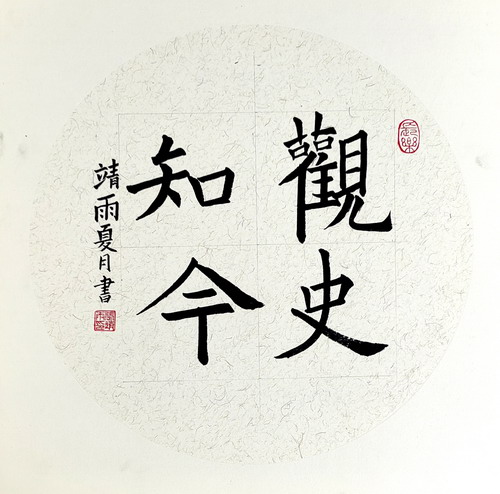 觀史
知今
靖雨夏月書